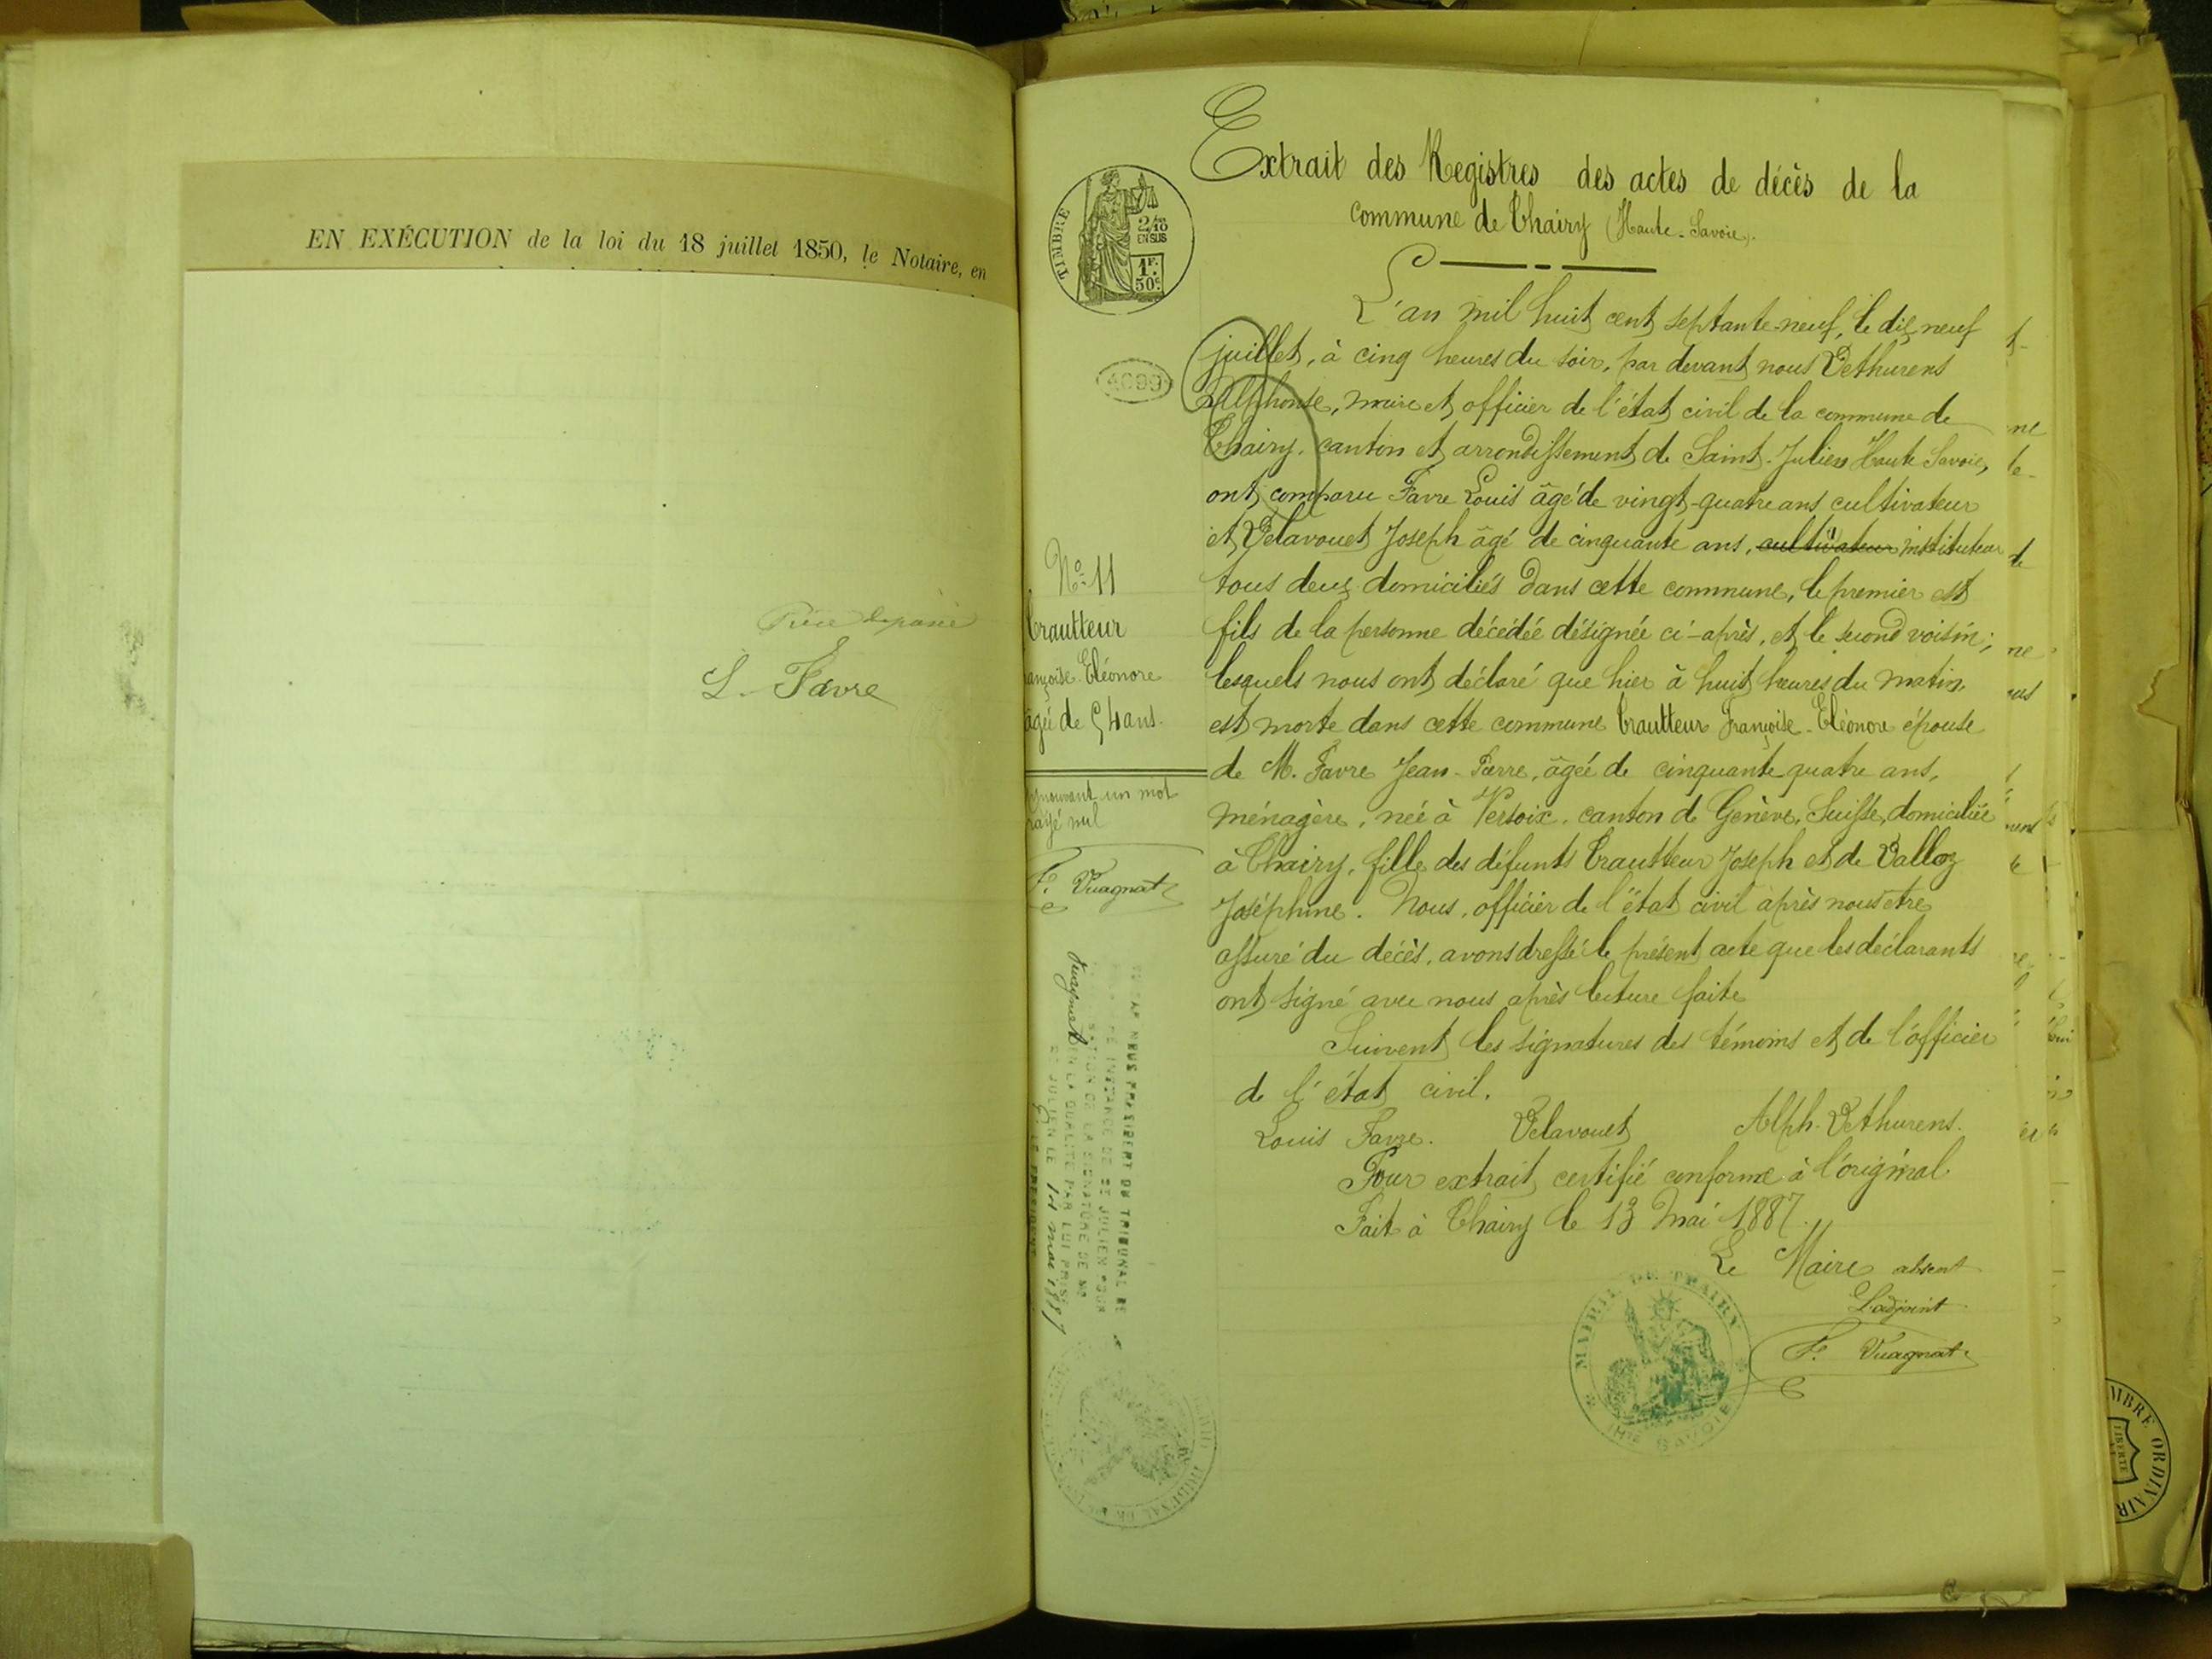 EN EXÉCUTION de la loi du 18 juillet 1850, le Notaire, en
L. Favre
Extrait des Registres des actes de décès de la
commune de Thairy (Haute-Savoie).
TIMBRE
2/10
EN SUS
1F.
50c
4099
L'an mil huit cent septante-neuf, le dix neuf
juillet, à cinq heures du soir, par devant nous Dethurens
Alphonse, maire et officier de l'état civil de la commune de
Thairy, canton et arrondissement de Saint-Julien Haute Savoie,
ont comparu Favre Louis âgé de vingt-quatre ans cultivateur
et Delavouet Joseph âgé de cinquante ans, cultivateur instituteur
tous deux domiciliés dans cette commune, le premier est
fils de la personne décédée désignée ci-après, et le second voisin;
lesquels nous ont déclaré que hier à huit heures du matin,
est morte dans cette commune Trautteur Françoise-Eléonore épouse
de M. Favre Jean-Pierre, âgée de cinquante quatre ans,
ménagère, née à Versoix, canton de Genève, Suisse, domiciliée
à Thairy, fille des défunts Trautteur Joseph et de Valloz
Joséphine. Nous, officier de l'état civil après nous etre
assuré du décès, avons dressé le présent acte que les déclarants
ont signé avec nous après lecture faite
Suivent les signatures des témoins et de l'officier
de l'état civil.
Louis Favre. Delavouet Alph. Dethurens.
Pour extrait certifié conforme à l'original
Fait à Thairy le 13 Mai 1887.
Le Maire absent
L'adjoint
F. Vuagnat
MAIRIE DE THAIRY
HTE SAVOIE
No 11
Trautteur
ançoise-Eléonore
âgée de 54 ans.
un mot
rayé nul
F. Vuagnat
NOUS PRESIDENT DU TRIBUNAL DE
INSTANCE DE ST JULIEN POUR
DE LA SIGNATURE DE MR
Vuagnat EN LA QUALITE PAR LUI PRISE
ST JULIEN LE 14 mai 1887
LE PRESIDENT
MBRE ORDINAIR